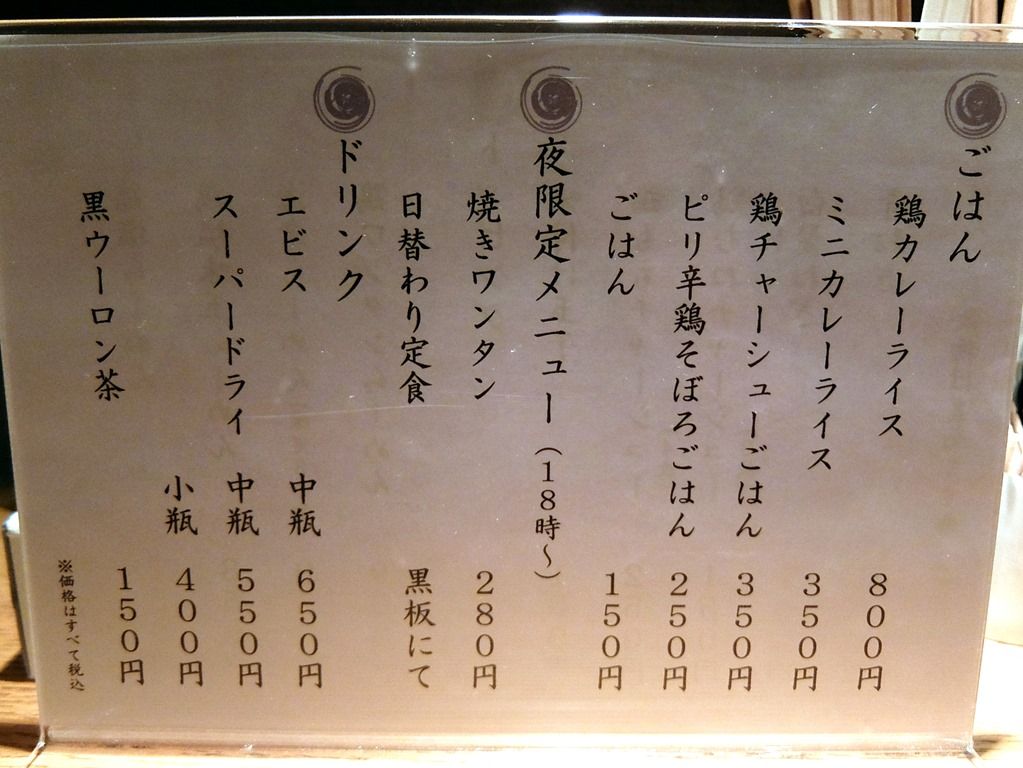 ごはん
鶏カレーライス 800円
ミニカレーライス 350円
鶏チャーシューごはん 350円
ピリ辛鶏そぼろごはん 250円
ごはん 150円
夜限定メニュー(18時~)
焼きワンタン 280円
日替わり定食 黒板にて
ドリンク
エビス 中瓶 650円
スーパードライ 中瓶 550円
小瓶 400円
黒ウーロン茶 150円
※価格はすべて税込